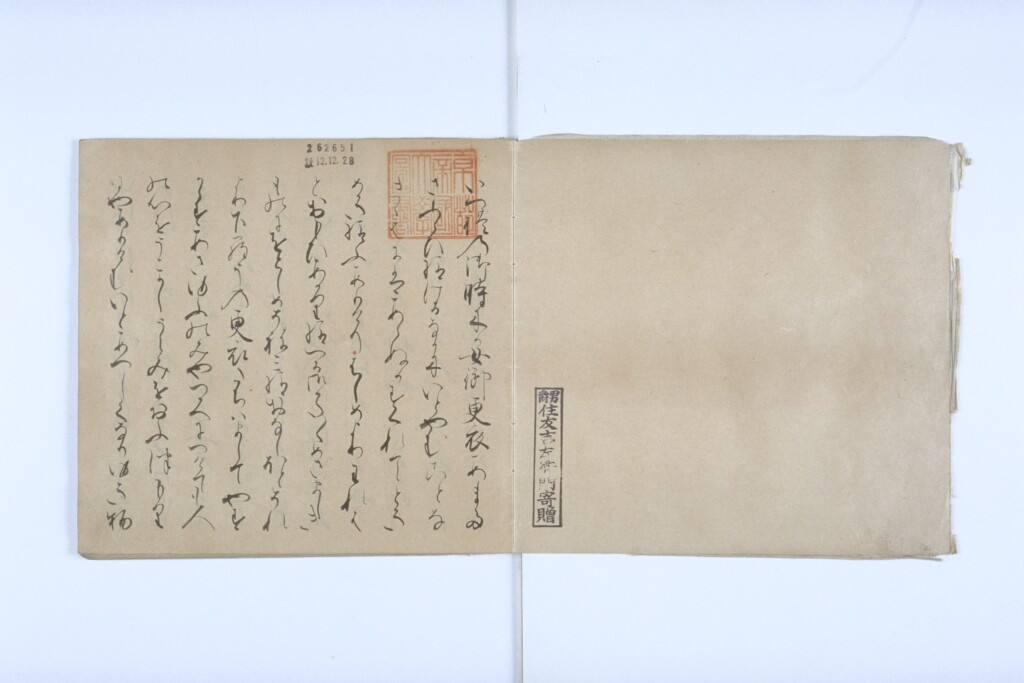 男爵住友吉左衛門寄贈
262651
12.12.28
いつれの御時にか女御更衣あまた
さふらひ給けるなかにいとやむことな
きゝはにはあらぬかすくれてとき
めき給ふありけりはしめよりわれは
とおもひあかり給へる御かた〳〵めさましき
ものにをとしめそねみ給おなしほとそれ
より下らうの更衣たちはましてやす
からすあさゆふのみやつかへにつけても人
の心をうこかしうらみをおふつもり
にやありけむいとあつしくなりゆき物